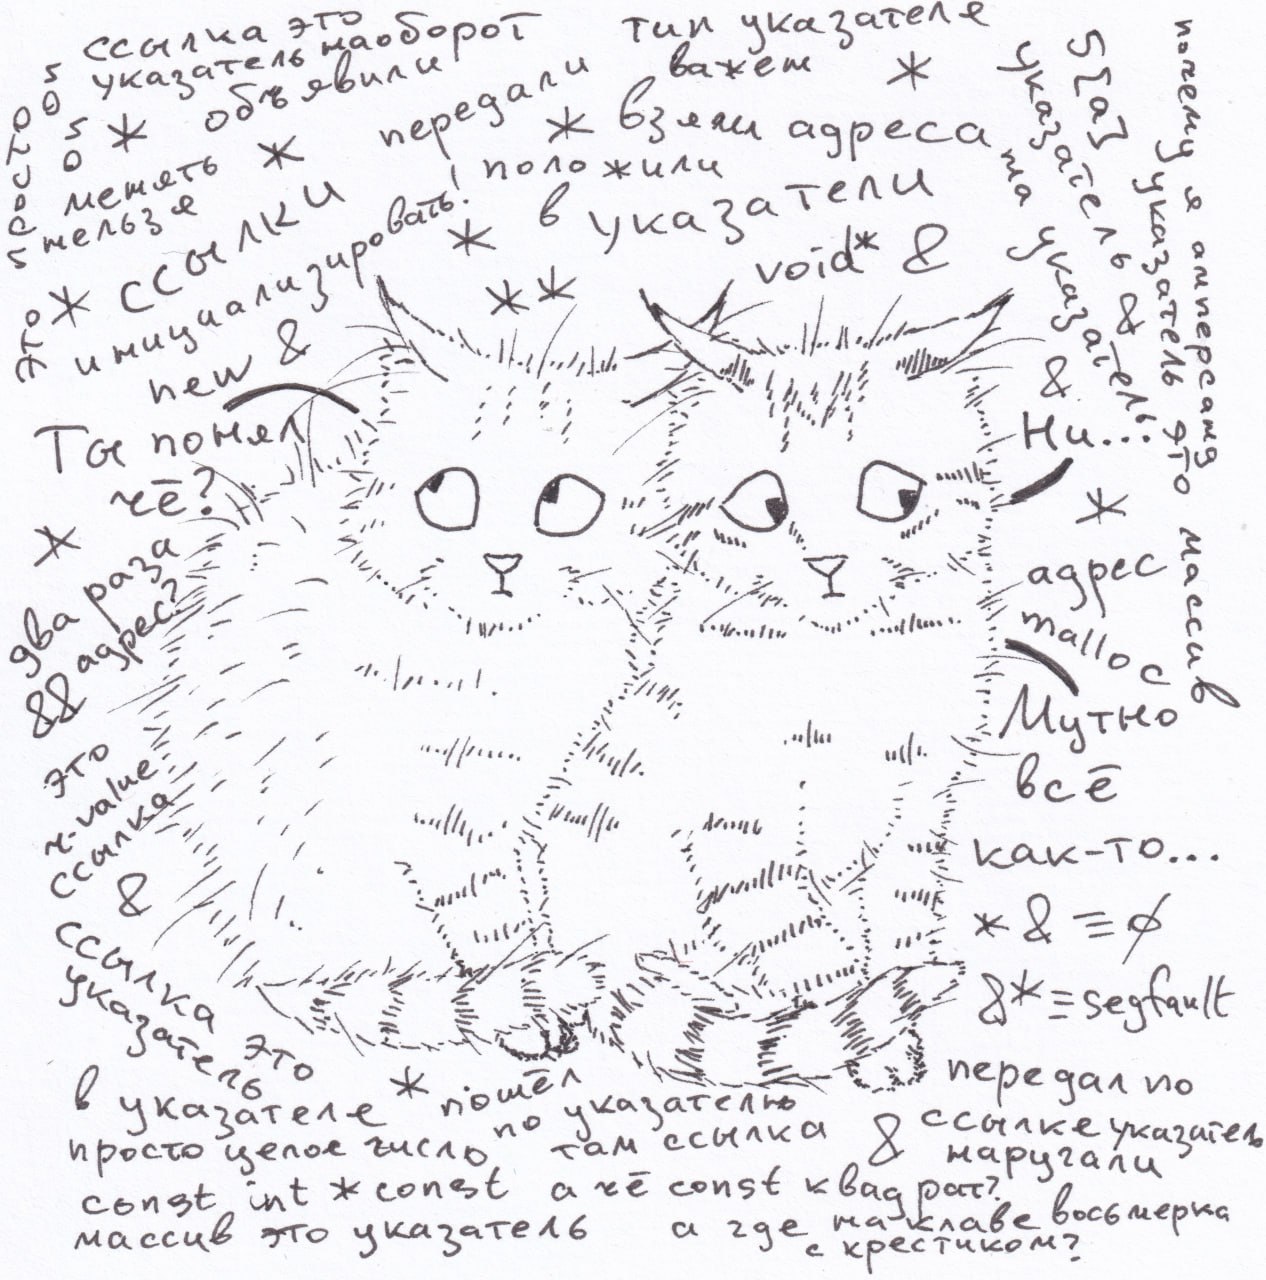 ссылка это
указатель наоборот
объявили
*
менять *
нельзя
тип указателя
важен *
передали
* взяли адреса
положили
в указатели
*
**
void* &
* ссылки
инициализировать!
new &
Ты понял
чё?
*
два раза
&& адрес?
это
r-value
ссылка
&
ссылка это
указатель
5[a]
указатель &
на указатель
почему я амперсанд
указатель это массив
&
Ни...
*
адрес
malloc
Мутно
всё
как-то...
*& ≡ ∅
&* ≡ segfault
передал по
& ссылке указатель
наругали
в указателе * пошёл
просто целое число по указателю
там ссылка
const int * const а чё const квадрат?
массив это указатель а где на клаве восьмерка
с крестиком?